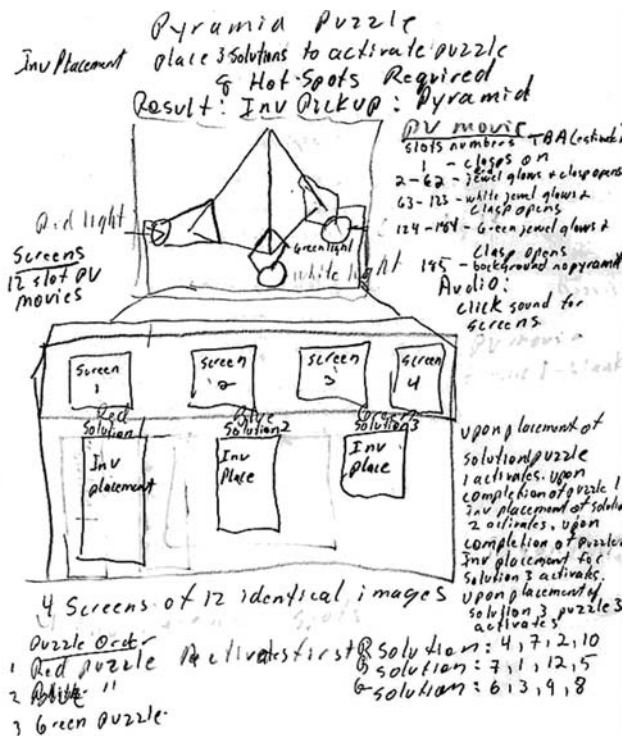 Pyramid Puzzle
Inv Placement
place 3 solutions to activate puzzle
8 Hot-Spots Required
Result: Inv Pickup: Pyramid
PV movie
slots numbers TBA
1 - clasps on
2-62 - jewel glows & clasp opens
63-123 - white jewel glows &
clasp opens
124-184 - Green jewel glows &
clasp opens
185 - background no pyramid
Audio:
click sound for
screens
Red light
Green light
White light
Screens
12 slot PV
movies
Screen
1
Screen
2
Screen
3
Screen
4
Red
Solution 1
Blue
Solution 2
Green
Solution 3
Inv
placement
Inv
Place
Inv
place
upon placement of
solution puzzle
1 activates. upon
completion of puzzle 1
inv placement of solution
2 activates, upon
completion of puzzle
Inv placement for
solution 3 activates.
upon placement of
solution 3, puzzle 3
activates
4 Screens of 12 identical images
Puzzle Order
1 Red puzzle activates first
2 "
3 Green puzzle
R solution: 4, 7, 2, 10
B solution: 7, 1, 12, 5
G solution: 6, 3, 9, 8